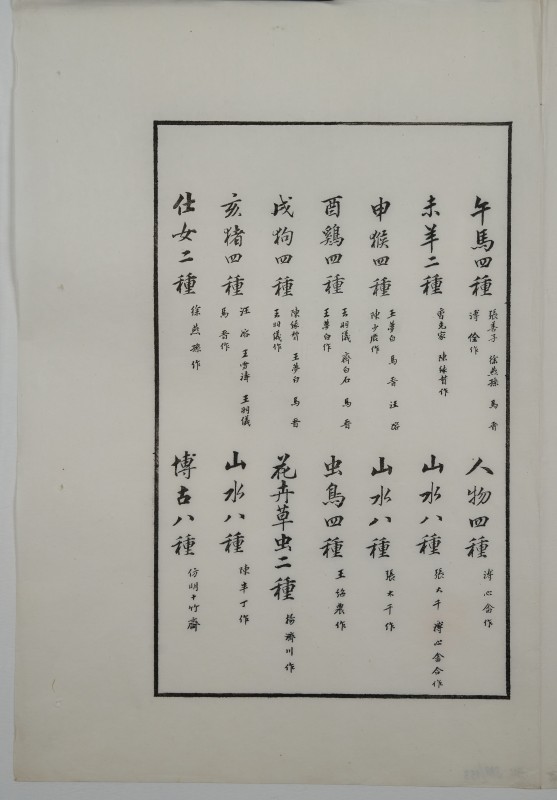 午馬四種 張善子 徐燕蓀 馬晉 溥佺作
未羊二種 曹克家 陳緣督作
申猴四種 王夢白 馬晉 汪溶 陳少鹿作
酉鷄四種 王羽儀 齊白石 馬晉 王夢白作
戌狗四種 陳緣督 王夢白 馬晉 王羽儀作
亥猪四種 汪溶 王雪濤 王羽儀 馬晉作
仕女二種 徐燕蓀作
人物四種 溥心畬作
山水八種 張大千 溥心畬合作
山水八種 張大千作
虫鳥四種 王紹農作
花卉草虫二種 楊濟川作
山水八種 陳半丁作
博古八種 仿明十竹齋